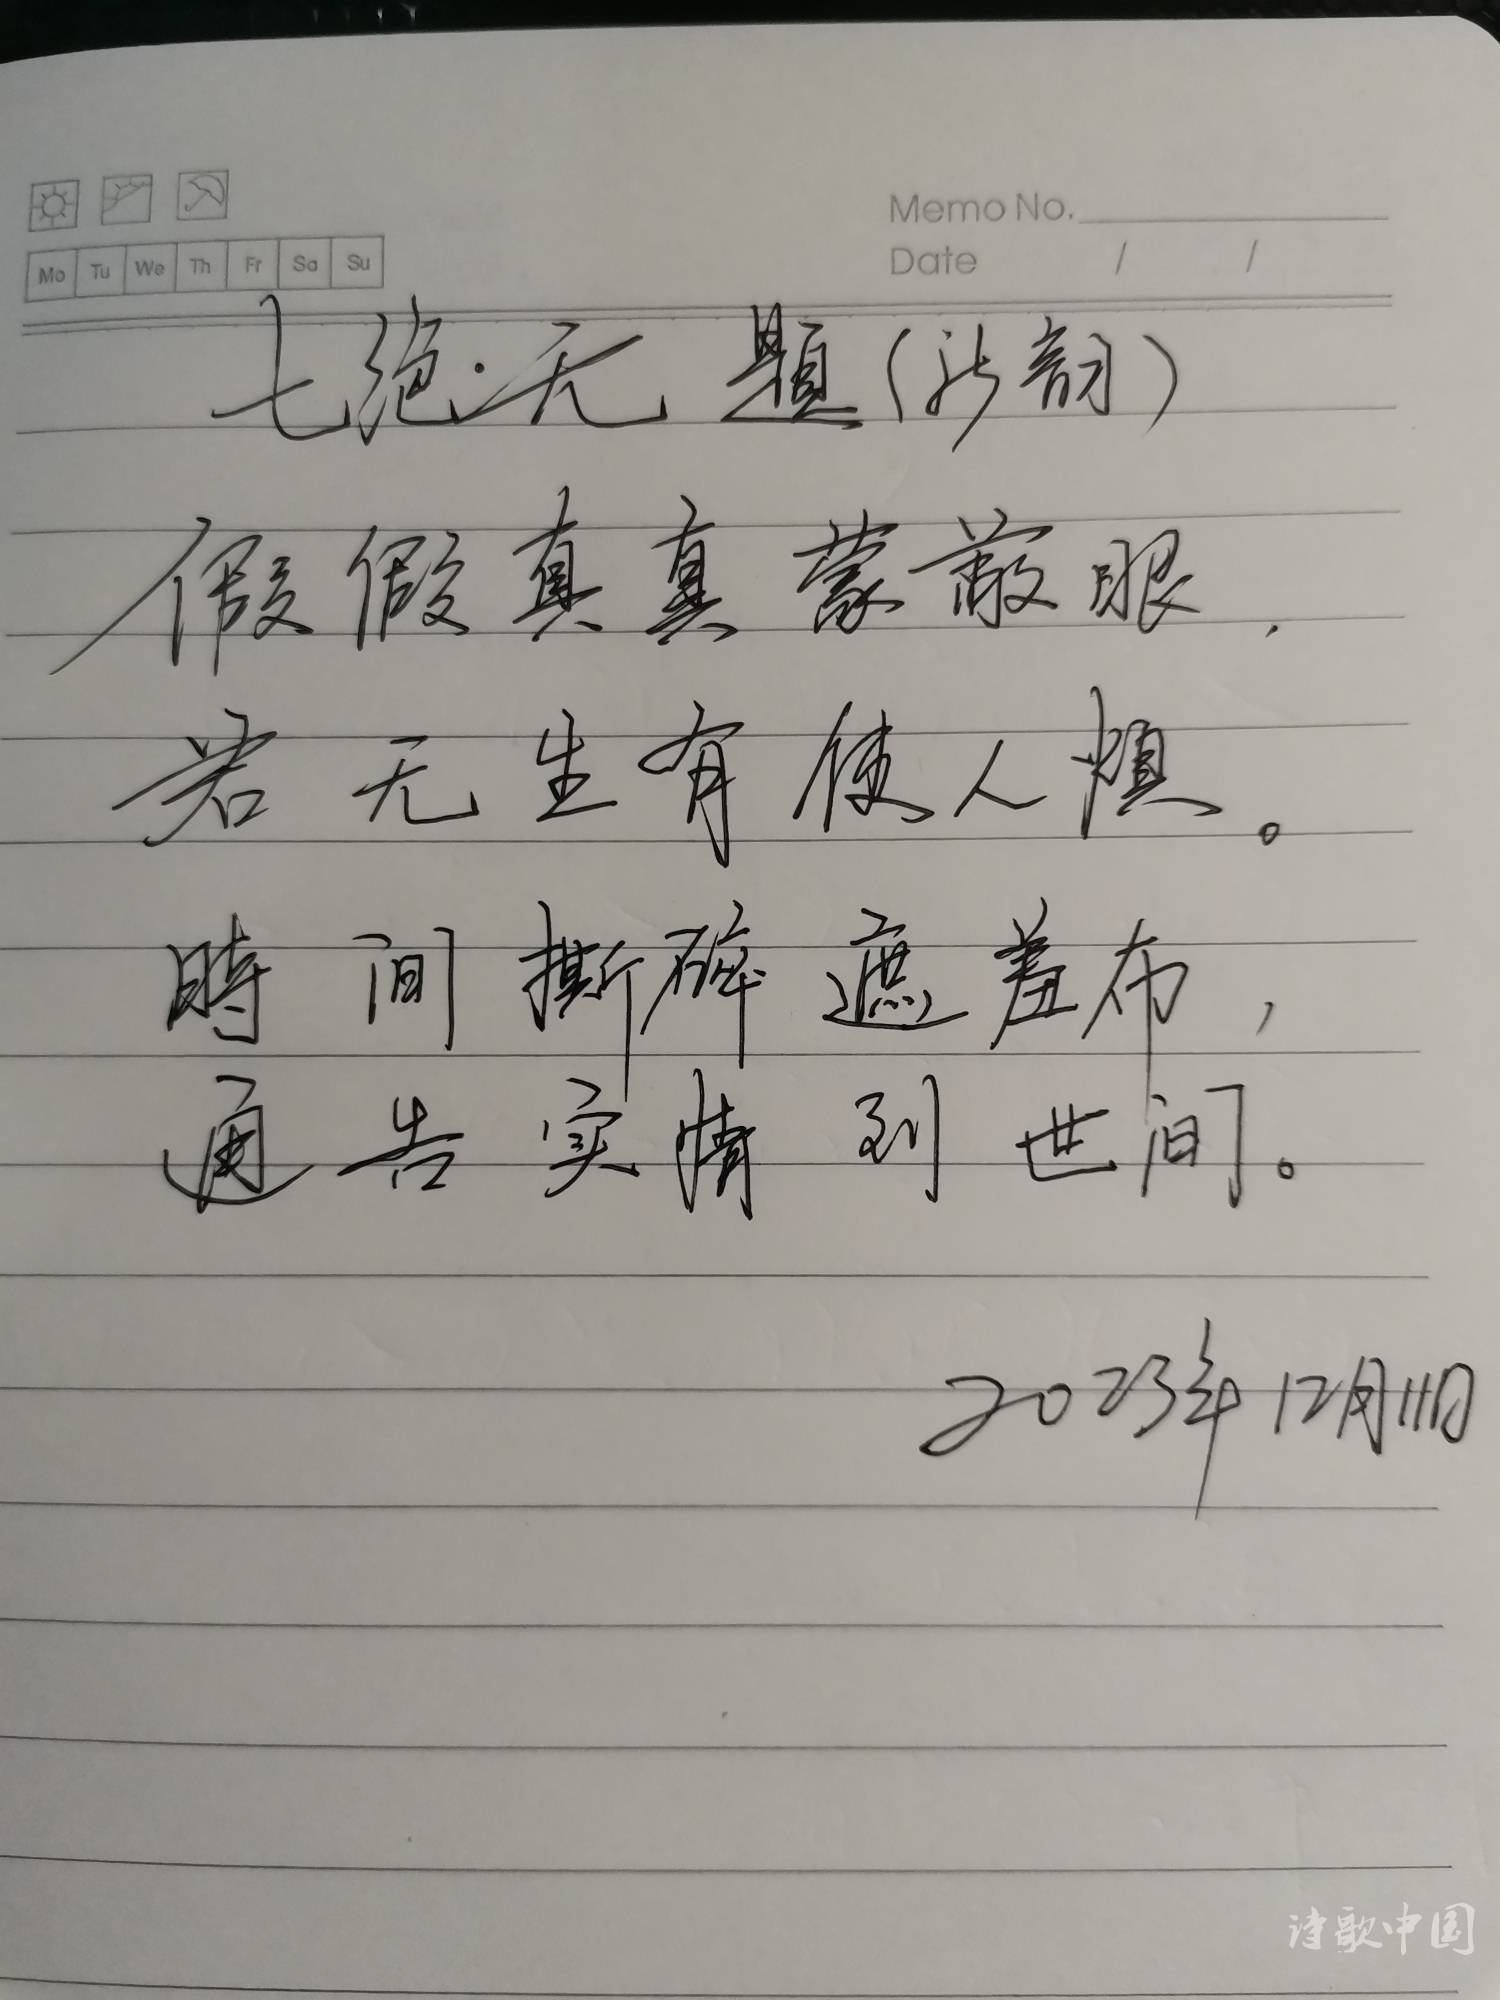 Memo No.
Mo Tu We Th Fr Sa Su
Date / /
七绝·无题(新韵)
假假真真蒙蔽眼,
若无生有使人烦。
時间撕碎遮羞布,
通告实情到世间。
2023年12月11日
诗歌中国